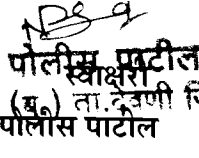 पोलीस पाटील
स्वाक्षरी
(म.) ता.देवणी जि
पोलीस पाटील